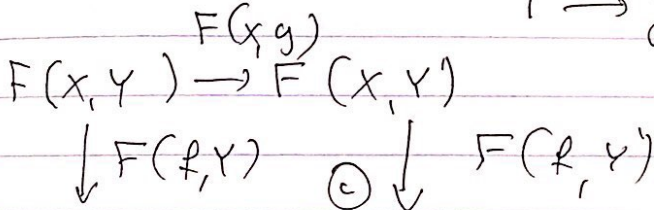 F(X,g)
F(X,Y) → F(X,Y')
↓ F(f,Y) ⓒ ↓ F(f,Y')